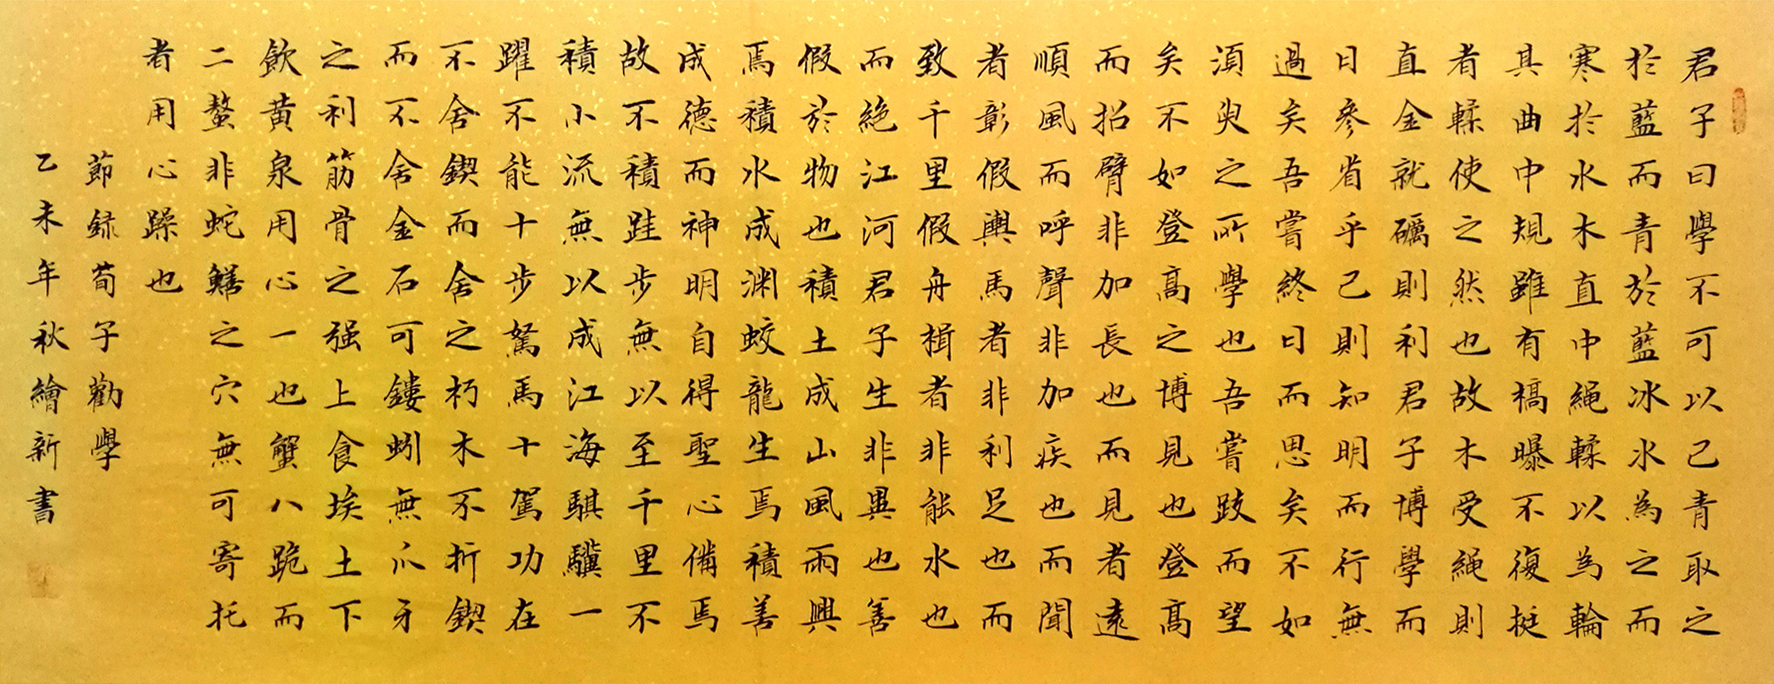 君子曰學不可以已青取之
於藍而青於藍冰水為之而
寒於水木直中繩輮以為輪
其曲中規雖有槁曝不復挺
者輮使之然也故木受繩則
直金就礪則利君子博學而
日參省乎己則知明而行無
過矣吾嘗終日而思矣不如
須臾之所學也吾嘗跂而望
矣不如登高之博見也登高
而招臂非加長也而見者遠
順風而呼聲非加疾也而聞
者彰假輿馬者非利足也而
致千里假舟楫者非能水也
而絶江河君子生非異也善
假於物也積土成山風雨興
焉積水成渊蛟龍生焉積善
成德而神明自得聖心備焉
故不積跬步無以至千里不
積小流無以成江海騏驥一
躍不能十步駑馬十駕功在
不舍鍥而舍之朽木不折鍥
而不舍金石可鏤蚓無爪牙
之利筋骨之强上食埃土下
飲黄泉用心一也蟹八跪而
二螯非蛇鱔之穴無可寄托
者用心躁也
節録荀子勸學
乙未年秋繪新書